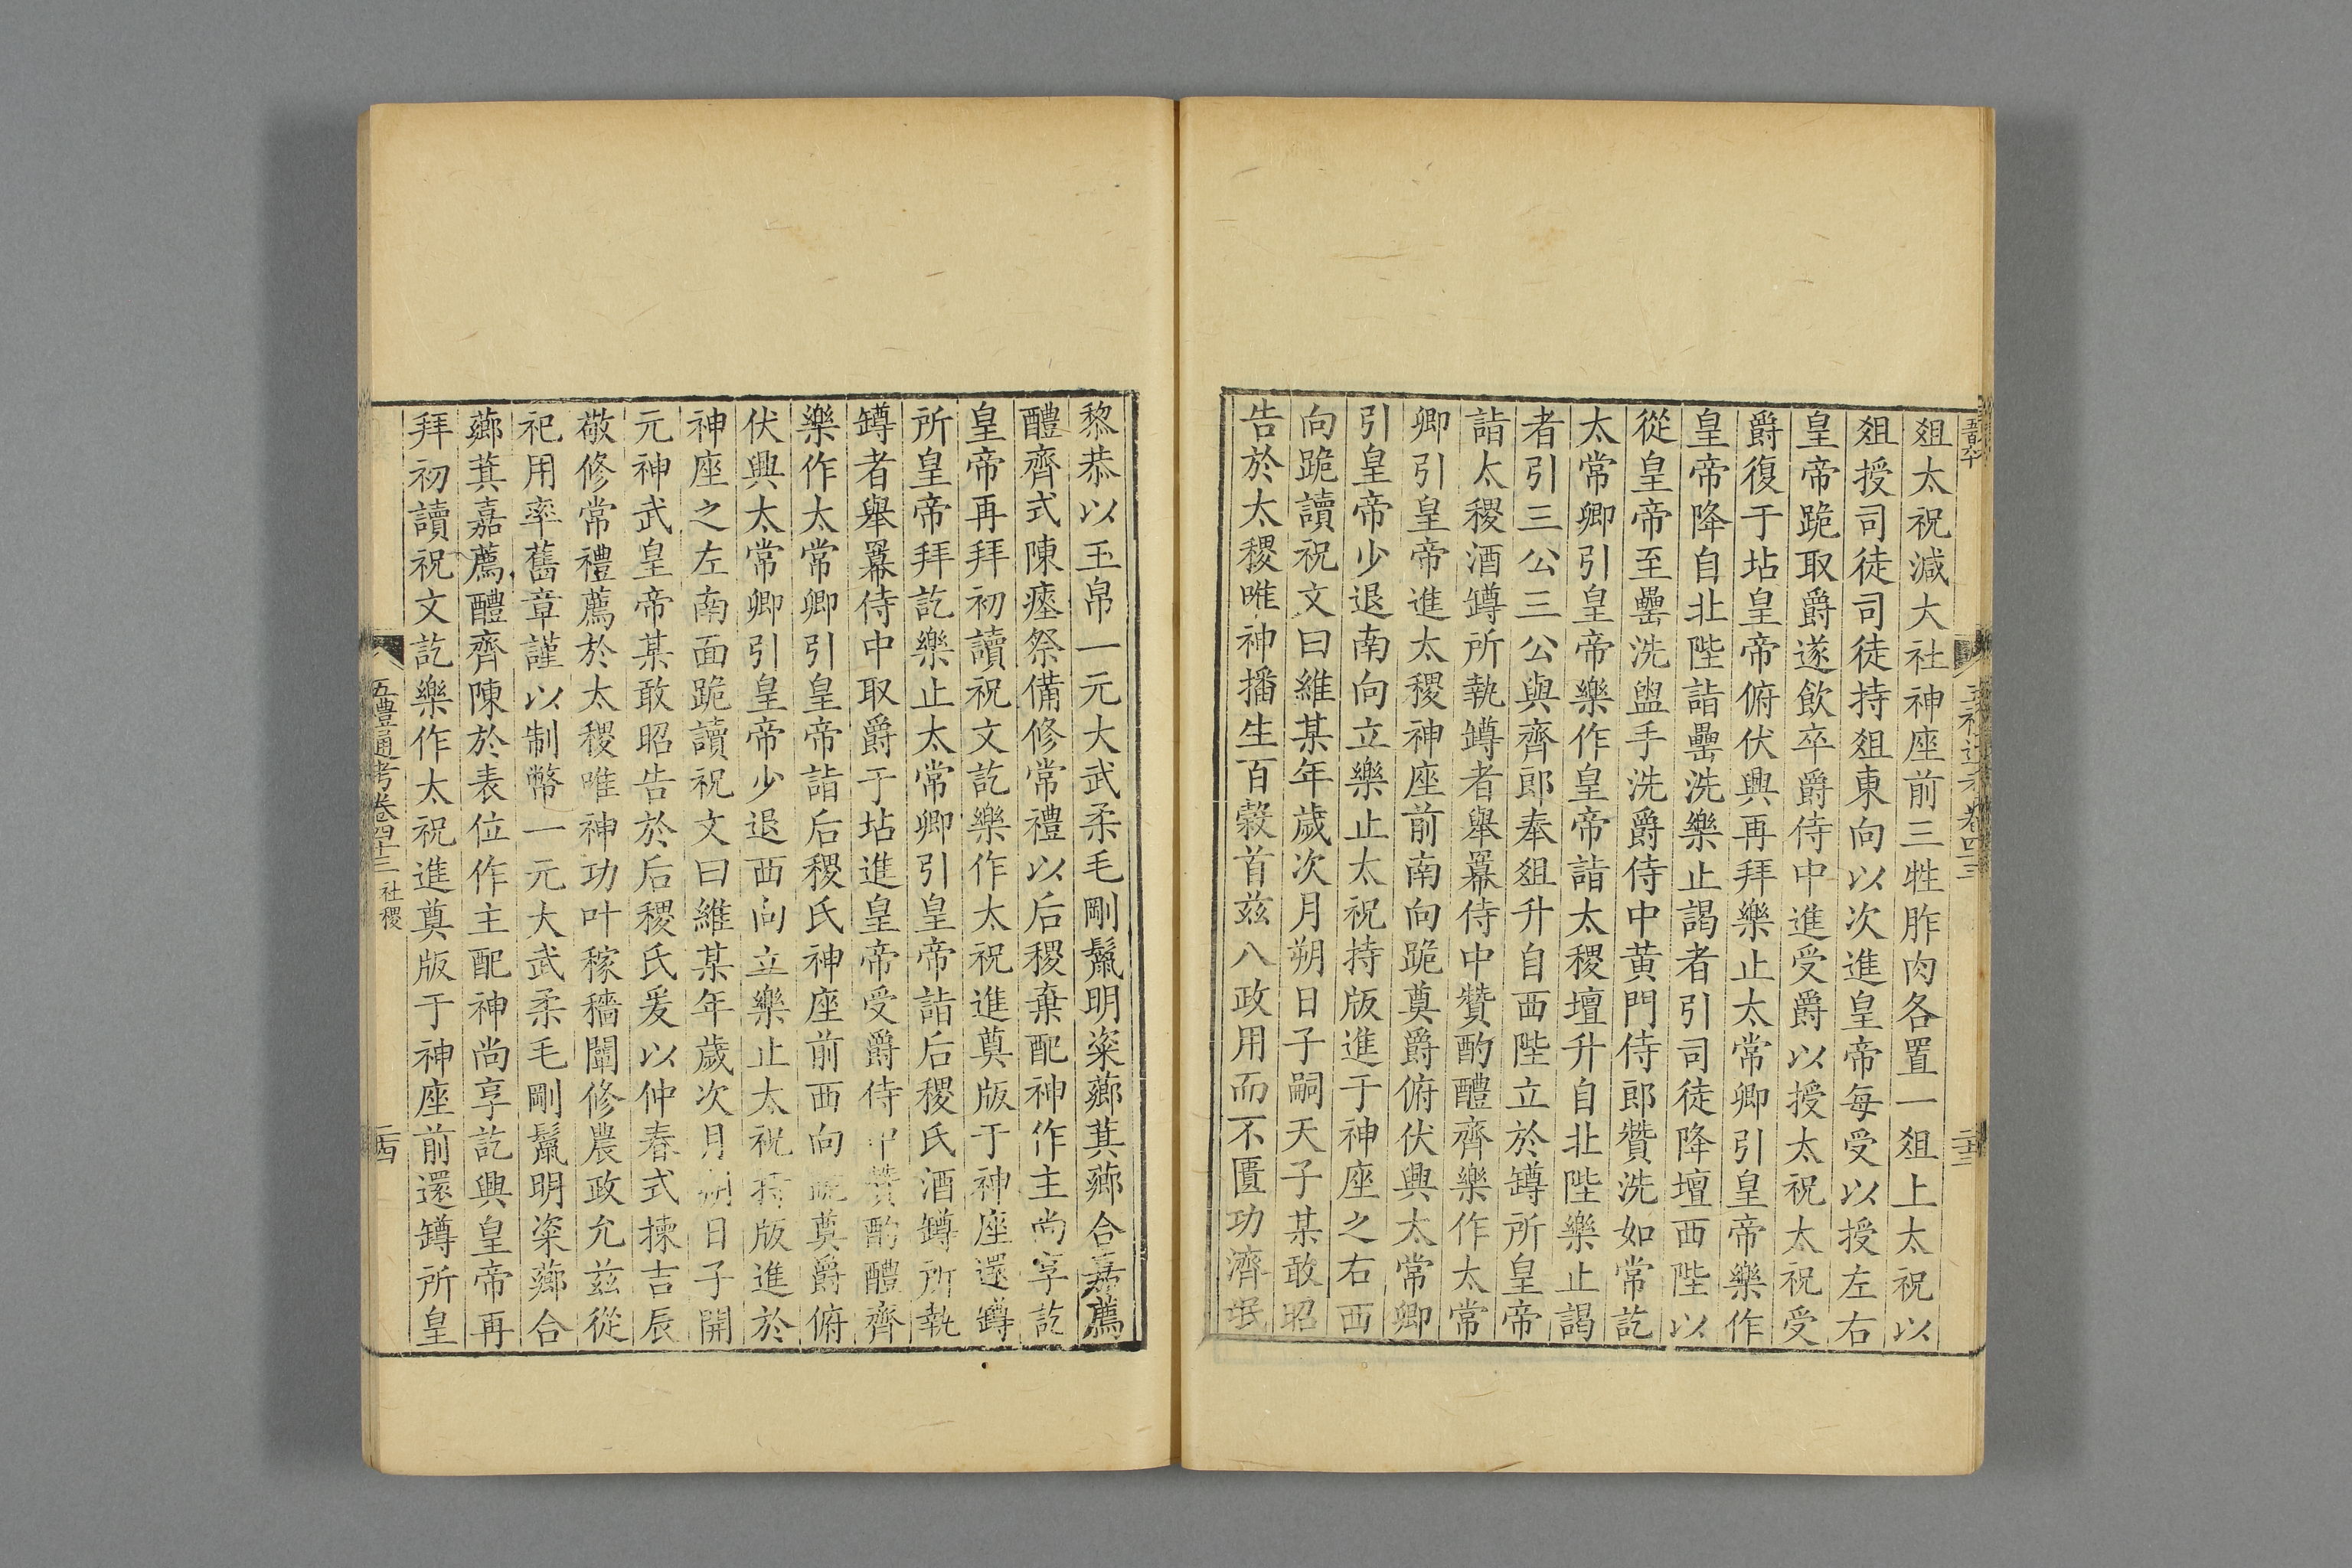 俎太祝減大社神座前三牲胙肉各置一俎上太祝以
俎授司徒司徒持俎東向以次進皇帝每受以授左右
皇帝跪取爵遂飲卒爵侍中進受爵以授太祝太祝受
爵復于坫皇帝俯伏興再拜樂止太常卿引皇帝樂作
皇帝降自北陛詣罍洗樂止謁者引司徒降壇西陛以
從皇帝至罍洗盥手洗爵侍中黃門侍郎贊洗如常訖
太常卿引皇帝樂作皇帝詣太稷壇升自北陛樂止謁
者引三公三公與齊郎奉俎升自西陛立於罇所皇帝
詣太稷酒罇所執罇者舉冪侍中贊酌醴齊樂作太常
卿引皇帝進太稷神座前南向跪奠爵俯伏興太常卿
引皇帝少退南向立樂止太祝持版進于神座之右西
向跪讀祝文曰維某年歲次月朔日子嗣天子某敢昭
告於太稷唯神播生百穀首兹八政用而不匱功濟氓
黎恭以玉帛一元大武柔毛剛鬣明粢薌萁薌合嘉薦
醴齊式陳瘞祭備修常禮以后稷棄配神作主尚享訖
皇帝再拜初讀祝文訖樂作太祝進奠版于神座還罇
所皇帝拜訖樂止太常卿引皇帝詣后稷氏酒罇所執
罇者舉冪侍中取爵于坫進皇帝受爵侍中贊酌醴齊
樂作太常卿引皇帝詣后稷氏神座前西向跪奠爵俯
伏興太常卿引皇帝少退西向立樂止太祝持版進於
神座之左南面跪讀祝文曰維某年歲次月朔日子開
元神武皇帝某敢昭告於后稷氏爰以仲春式揀吉辰
敬修常禮薦於太稷唯神功叶稼穡闡修農政允兹從
祀用率舊章謹以制幣一元大武柔毛剛鬣明粢薌合
薌萁嘉薦醴齊陳於表位作主配神尚享訖興皇帝再
拜初讀祝文訖樂作太祝進奠版于神座前還罇所皇
五禮通考卷四十三 社稷